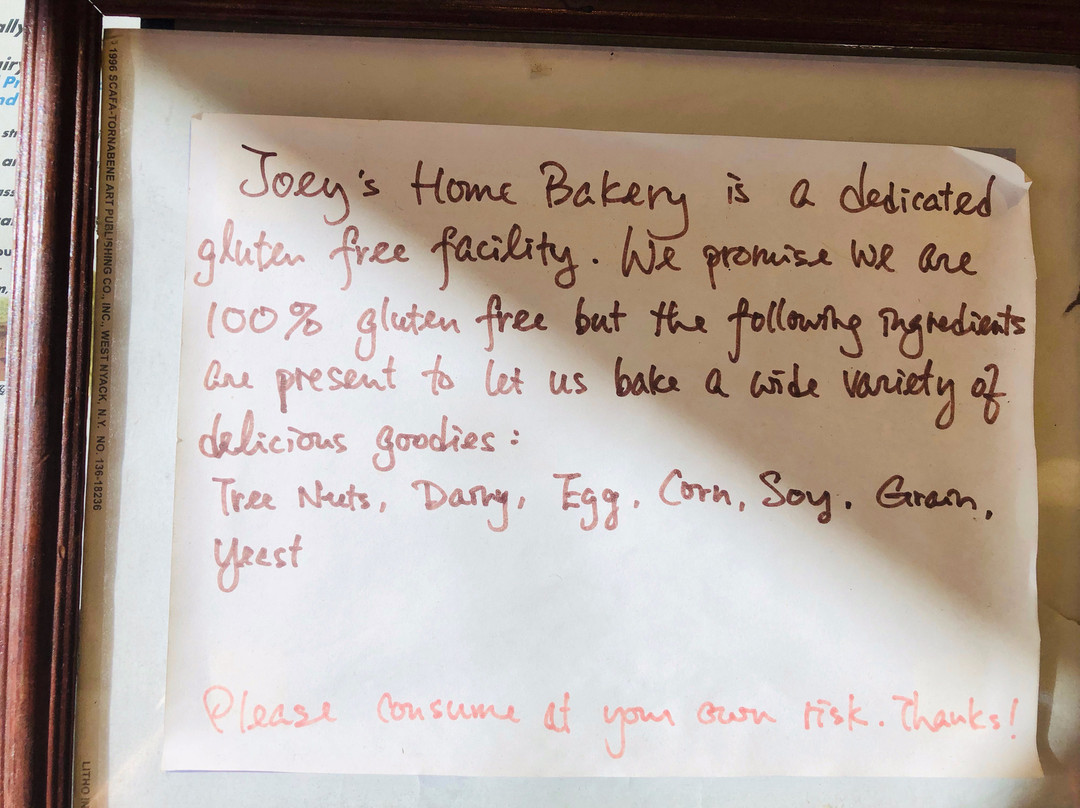 Joey's Home Bakery is a dedicated
gluten free facility. We promise we are
100% gluten free but the following ingredients
are present to let us bake a wide variety of
delicious goodies:
Tree Nuts, Dairy, Egg, Corn, Soy, Grain,
Yeast
Please consume at your own risk. Thanks!
1996 SCAFA-TORNABENE ART PUBLISHING CO., INC., WEST NYACK, N.Y. NO. 136-18236
LITHO IN